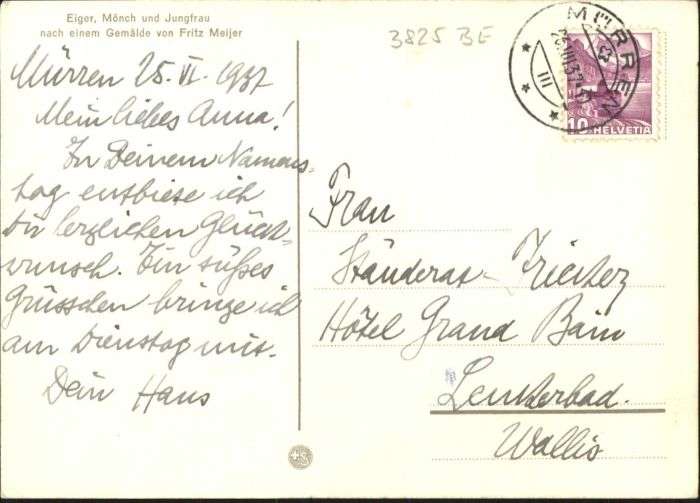 Eiger, Mönch und Jungfrau
nach einem Gemälde von Fritz Meijer
3825 BE
MÜRREN
III
10 HELVETIA
Mürren 25. VI. 1937
Mein liebes Anna!
Zu Deinem Namens-
tag entbiete ich
Dir herzlichen Glück-
wunsch. Ein süßes
Grüsschen bringe ich
am Dienstag mit.
Dein Hans
Frau
Ständerat
Hôtel Grand Bain
Leukerbad.
Wallis